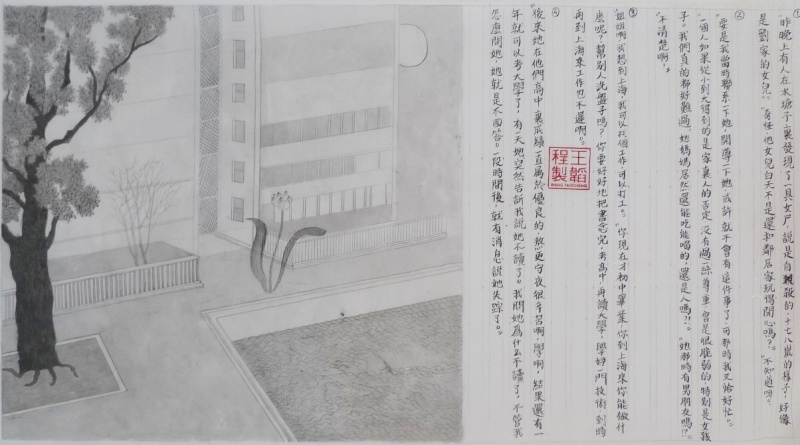 ①
昨晚上有人在水塘子裏發現了一具女尸，説是自殺的，十七八嵗的樣子，好像
是劉家的女兒。”“奇怪，她女兒白天不是還和鄰居家玩得開心嗎？”“不知道呀。”
②
“要是我當時聯系一下她，開導一下她，或許就不會有這件事了，可那時我又俗好忙。”
“一個人如果從小到大得到的是家裏人的否定，没有過一絲尊重，會是很脆弱的，特别是女孩
子。我們真的都好難過，她媽媽居然還能吃能喝的，還是人嗎？！”“她那時有男朋友嗎？”
“不清楚啊。”
③
“姐姐啊，我想到上海，我可以找個工作，可以打工。”“你現在才初中畢業，你到上海來你能做什
麽呢？幫别人洗盤子嗎？你要好好地把書念完，考高中，再讀大學，學好一門技術，到時
再到上海來工作也不遲啊。”
④
“後來她在他們高中裏成績一直屬於優良的，熬更守夜很辛苦啊，學啊，結果還有一
年就可以考大學了，有一天她突然告訴我説她不讀了。我問她爲什么不讀了，不管我
怎麽問她，她就是不回答。一段時間後，就有消息説她失踪了。”
王韜程製
WANG TAOCHENG